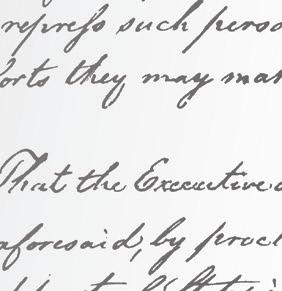 repress such perso
orts they may mak
That the Executive
aforesaid, by procl